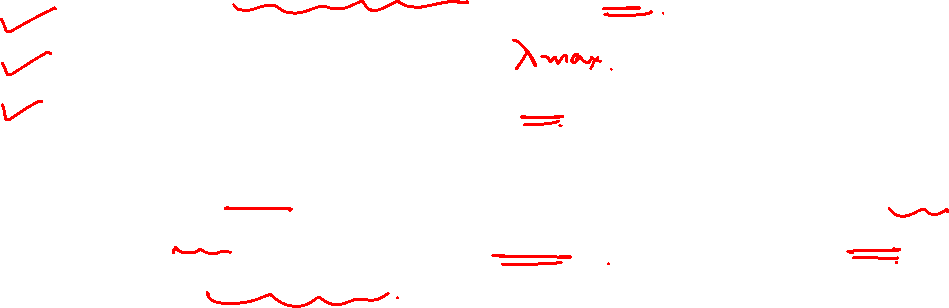 λmax.